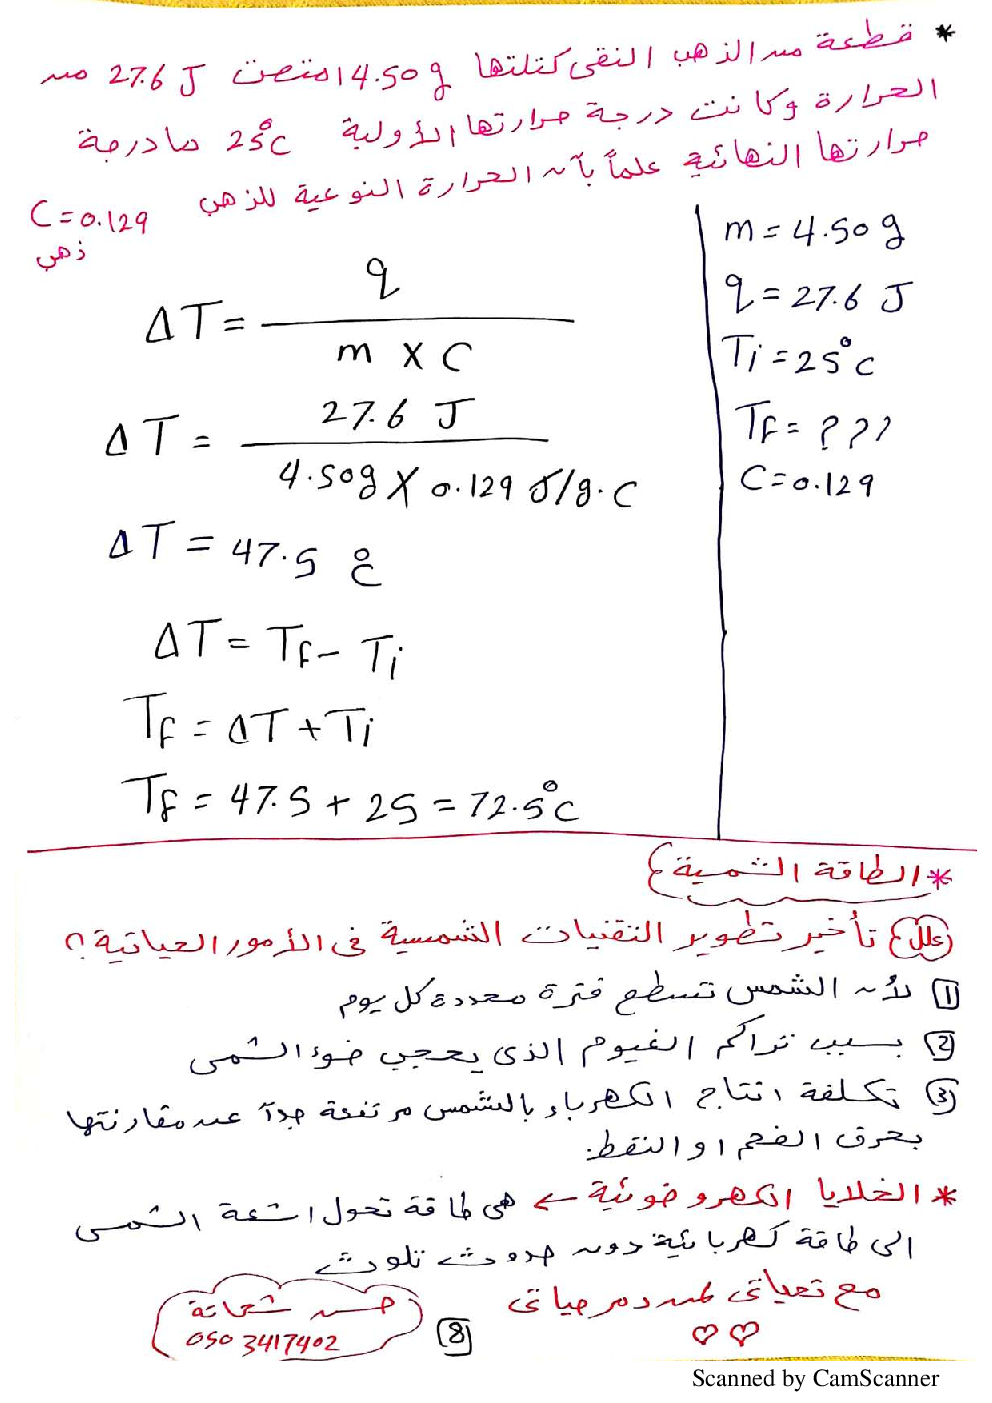 * قطعة من الذهب النقى كتلتها 4.50 g امتصت 27.6 J من
الحرارة وكانت درجة حرارتها الأولية 25°C ما درجة
حرارتها النهائية علماً بأن الحرارة النوعية للذهب C = 0.129
ذهب
m = 4.50 g
q = 27.6 J
Ti = 25°C
TF = ???
C = 0.129
ΔT = q / m × C
ΔT = 27.6 J / 4.50g × 0.129 J/g.C
ΔT = 47.5 °C
ΔT = TF - Ti
TF = ΔT + Ti
TF = 47.5 + 25 = 72.5°C
* الطاقة الشمسية
علل تأخير تطوير التقنيات الشمسية فى الأمور الحياتية؟
1 لأن الشمس تسطع فترة محددة كل يوم
2 بسبب تراكم الغيوم الذى يحجب ضوء الشمس
3 تكلفة انتاج الكهرباء بالشمس مرتفعة جداً عند مقارنتها
بحرق الفحم او النفط.
* الخلايا الكهروضوئية ← هى طاقة تحول اشعة الشمس
الى طاقة كهربائية دون حدوث تلوث
مع تحياتى لمن دمر حياتى
حسن شحاتة
050 3417402
8
Scanned by CamScanner